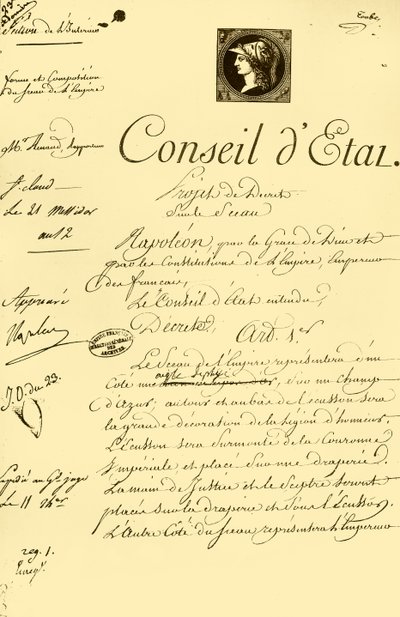 Section de l'Intérieur
forme et Composition
du Sceau de l'Empire
Mr. Renaud, Rapporteur
St. Cloud
Le 21 Messidor
an 12
Approuvé
Napoléon
J.O. du 23.
Le 11
reg. 1.
Conseil d'Etat.
Projet de Décret
Sur le Sceau
Napoléon, par la Grace de Dieu et
par les Constitutions de l'Empire, Empereur
des français,
Le Conseil d'état entendu,
Décrete,
Art. 1er
Le Sceau de l'Empire représentera d'un
Coté un aigle, Sur un champ
d'azur; autour et au bas de l'écusson sera
la grande décoration de la légion d'honneur.
L'Écusson sera Surmonté de la Couronne
Impériale et placé Sur une draperie.
La main de Justice et le Sceptre seront
placés sur la draperie et sous l'Écusson.
L'autre Côté du Sceau représentera l'Empereur